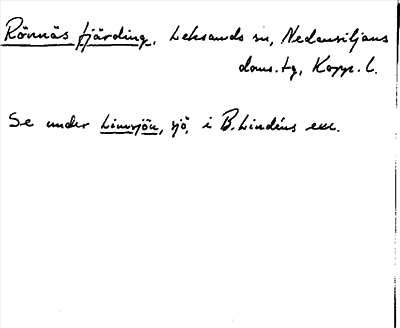 Rönnäs fjärding, Leksands sn, Nedansiljans
doms.tg, Kopp. l.
Se under Limsjön, sjö, i B. Lindéns exc.